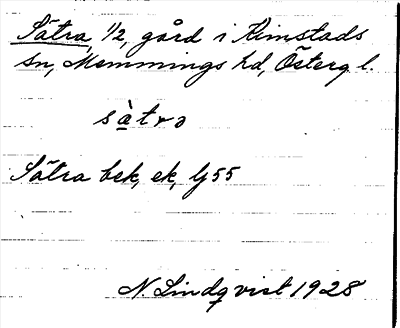 Sätra, 1/2, gård i Kimstads
sn, Memmings hd, Österg l.
sàtrɔ
Sätra bek, ek, Lj 55
N. Lindqvist 1928